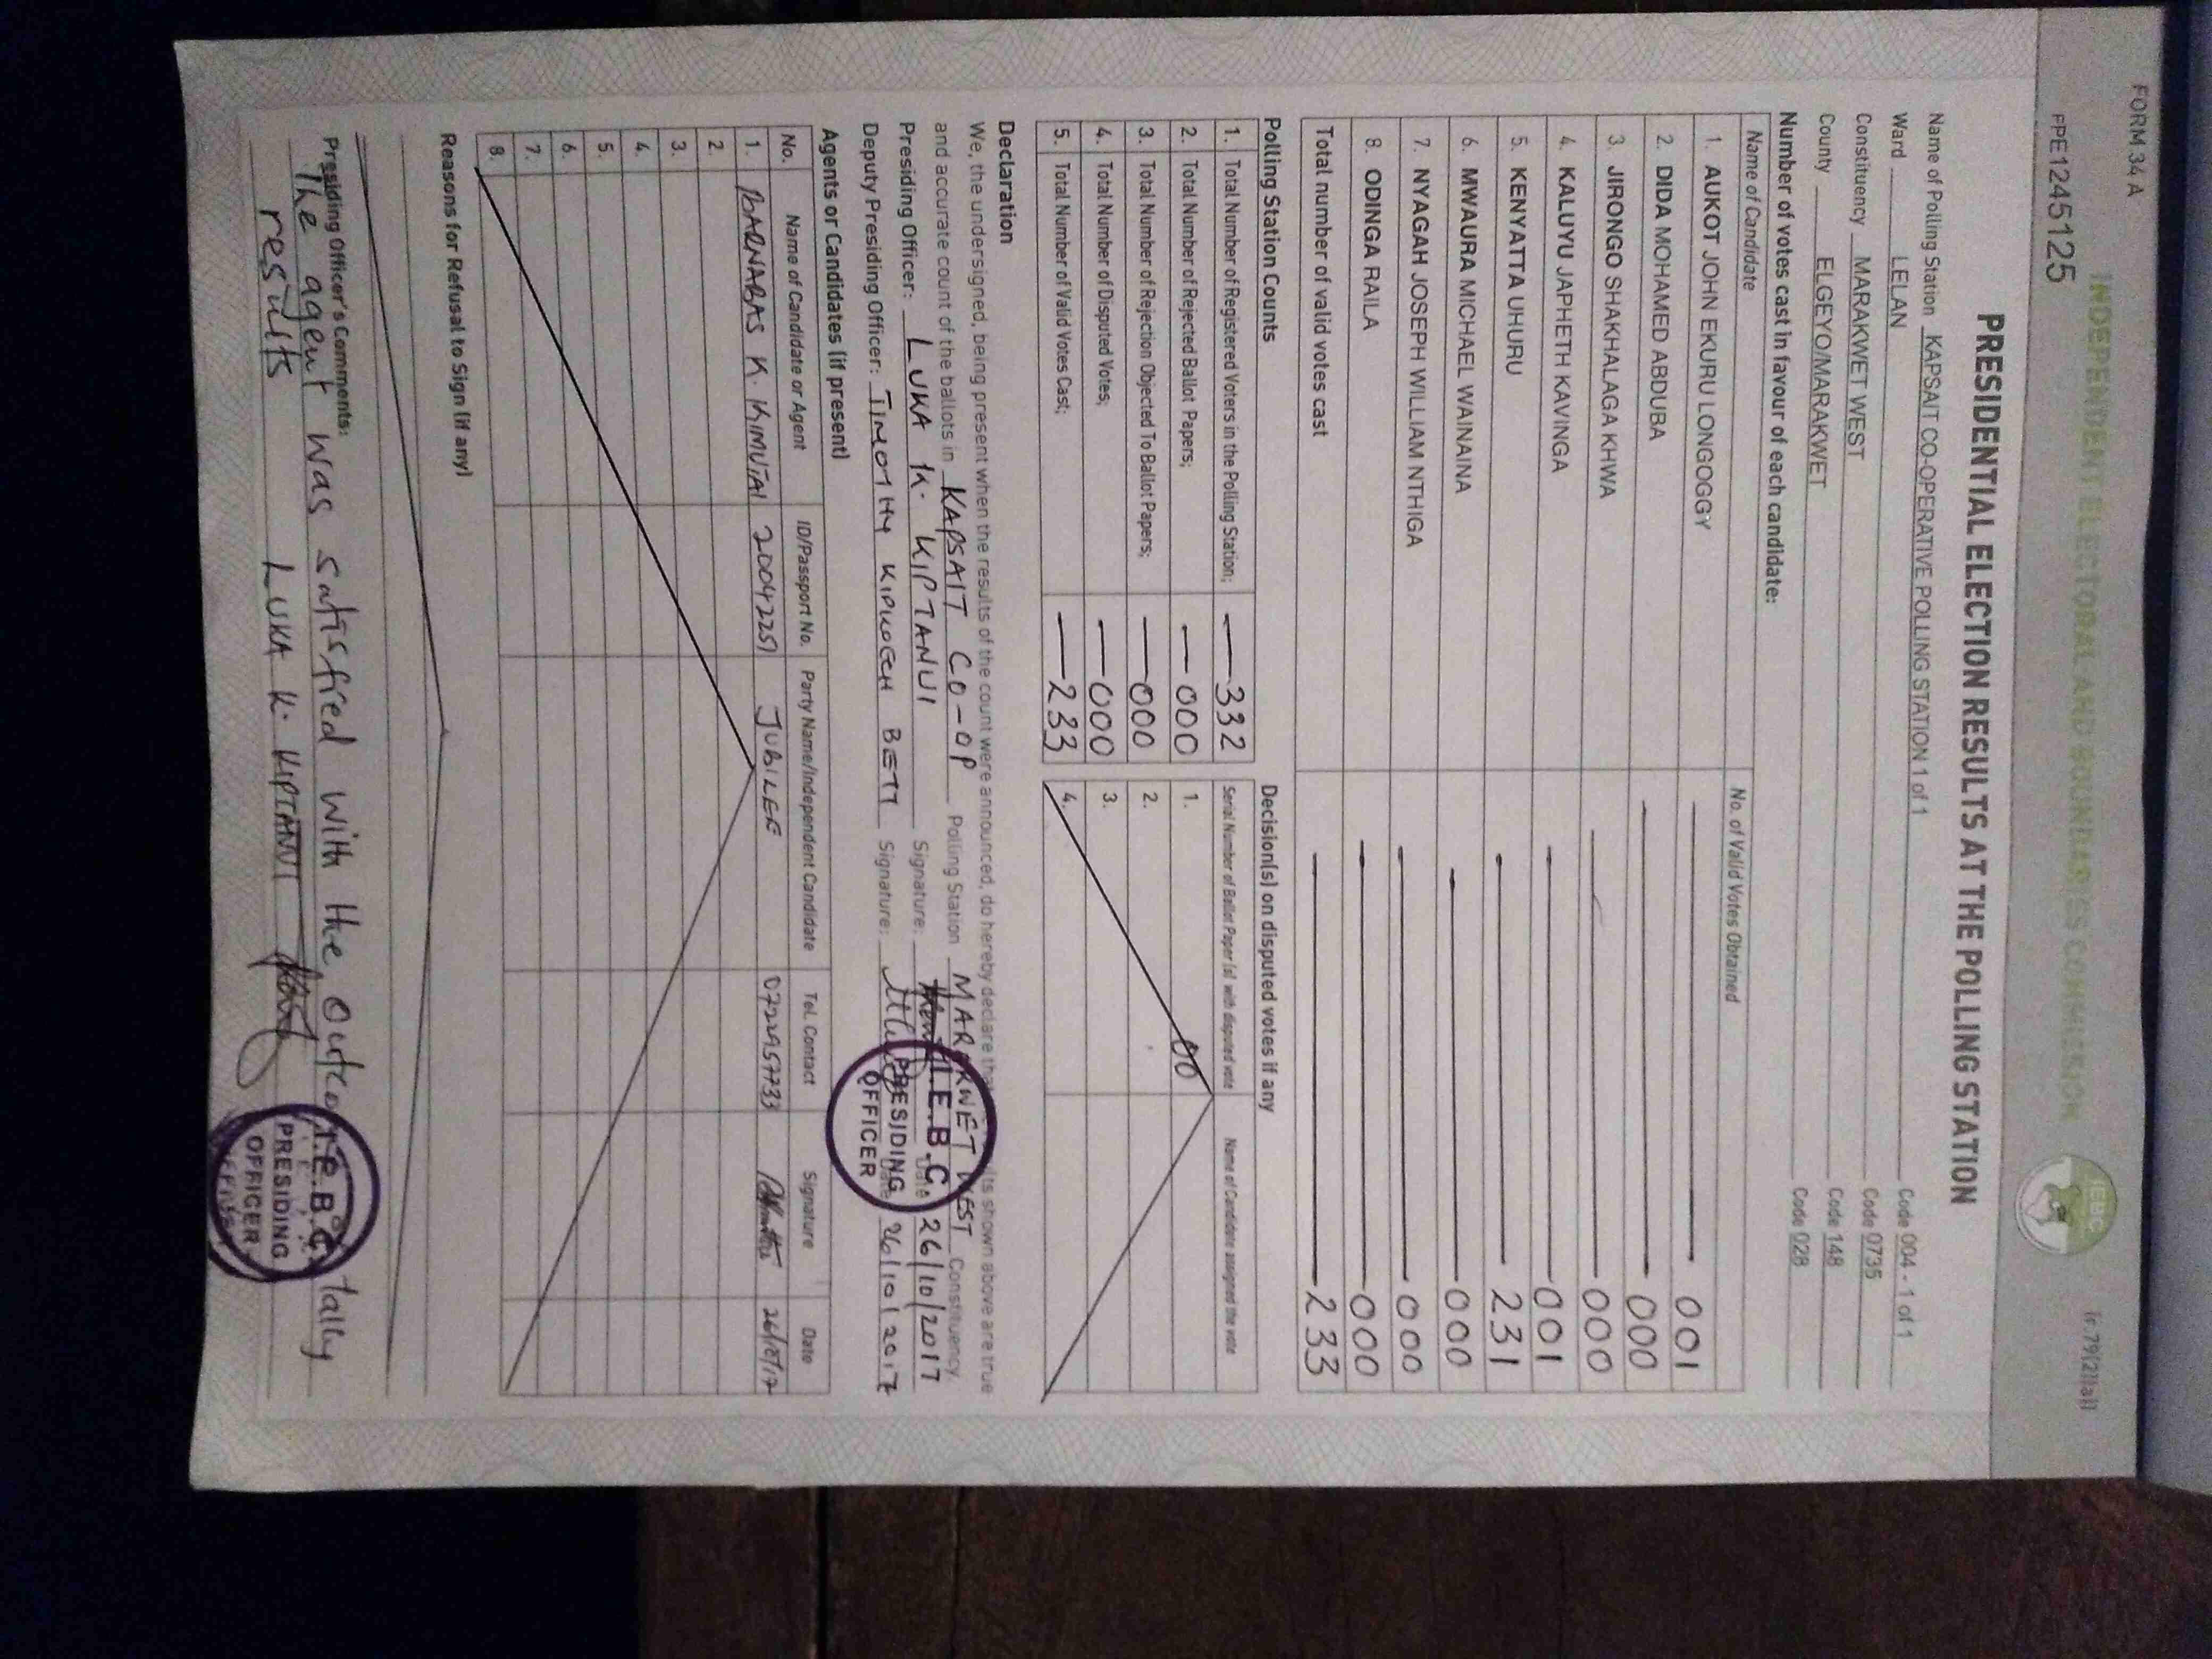 FORM 34 A
INDEPENDENT ELECTORAL AND BOUNDARIES COMMISSION
IEBC
(r.79(2)(a))
PPE1245125
PRESIDENTIAL ELECTION RESULTS AT THE POLLING STATION
Name of Polling Station KAPSAIT CO-OPERATIVE POLLING STATION 1 of 1 Code 004 - 1 of 1
Ward LELAN Code 0735
Constituency MARAKWET WEST Code 148
County ELGEYO/MARAKWET Code 028
Number of votes cast in favour of each candidate:
Name of Candidate No. of Valid Votes Obtained
1. AUKOT JOHN EKURU LONGOGGY 001
2. DIDA MOHAMED ABDUBA 000
3 JIRONGO SHAKHALAGA KHWA 000
4. KALUYU JAPHETH KAVINGA 001
5. KENYATTA UHURU 231
6. MWAURA MICHAEL WAINAINA 000
7. NYAGAH JOSEPH WILLIAM NTHIGA 000
8. ODINGA RAILA 000
Total number of valid votes cast 233
Polling Station Counts
1. Total Number of Registered Voters in the Polling Station; 332
2. Total Number of Rejected Ballot Papers; 000
3. Total Number of Rejection Objected To Ballot Papers; 000
4. Total Number of Disputed Votes; 000
5. Total Number of Valid Votes Cast; 233
Decision(s) on disputed votes if any
Serial Number of Ballot Paper (s) with disputed vote Name of Candidate assigned the vote
1. 00
2.
3.
4.
Declaration
We, the undersigned, being present when the results of the count were announced, do hereby declare that shown above are true
and accurate count of the ballots in KAPSAIT CO-OP Polling Station MARAKWET WEST Constituency
Presiding Officer: LUKA K. KIPTANUI Signature: Date 26/10/2017
Deputy Presiding Officer: TIMOTHY KIPKOECH BETT Signature: Date 26/10/2017
I.E.B.C.
PRESIDING
OFFICER
Agents or Candidates (if present)
No. Name of Candidate or Agent ID/Passport No. Party Name/Independent Candidate Tel. Contact Signature Date
1. BARNABAS K. KIMUTAI 20042251 JUBILEE 0722957733 26/10/17
2.
3.
4.
5.
6.
7.
8.
Reasons for Refusal to Sign (if any)
Presiding Officer's Comments:
The agent was satisfied with the outcome tally
results LUKA K. KIPTANUI
I.E.B.C.
PRESIDING
OFFICER